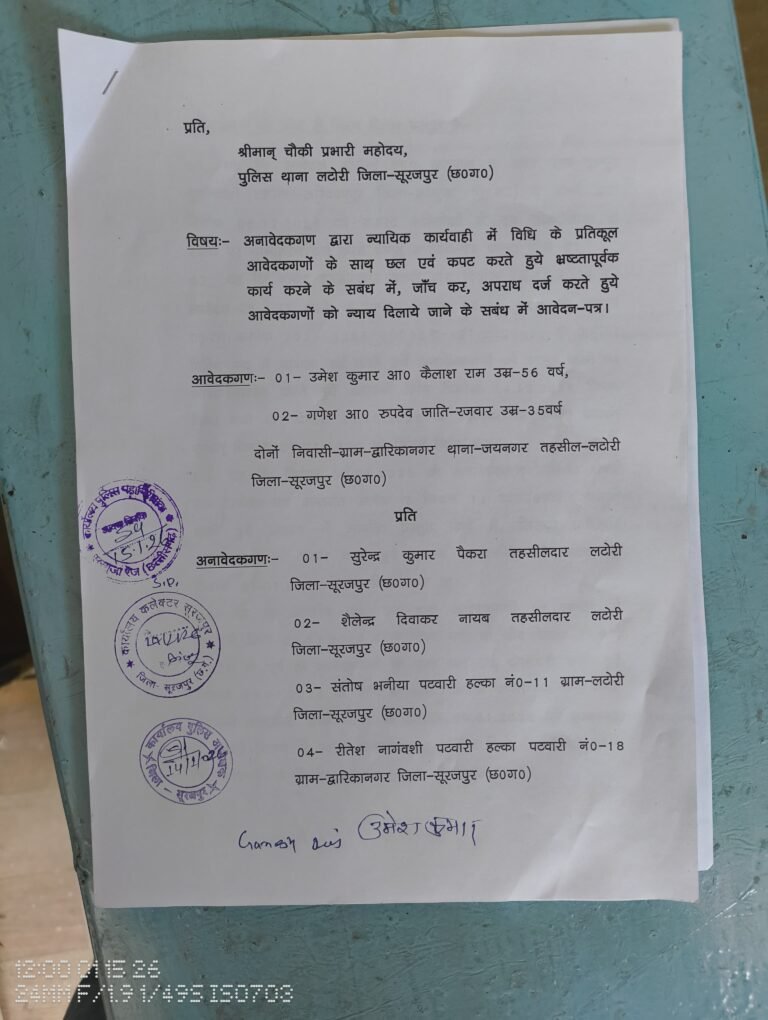 प्रति,
श्रीमान् चौकी प्रभारी महोदय,
पुलिस थाना लटोरी जिला-सूरजपुर (छ0ग0)
विषयः- अनावेदकगण द्वारा न्यायिक कार्यवाही में विधि के प्रतिकूल
आवेदकगणों के साथ छल एवं कपट करते हुये भ्रष्टतापूर्वक
कार्य करने के सबंध में, जाँच कर, अपराध दर्ज करते हुये
आवेदकगणों को न्याय दिलाये जाने के सबंध में आवेदन-पत्र।
आवेदकगणः- 01- उमेश कुमार आ0 कैलाश राम उम्र-56 वर्ष,
02- गणेश आ0 रुपदेव जाति-रजवार उम्र-35वर्ष
दोनों निवासी-ग्राम-द्वारिकानगर थाना-जयनगर तहसील-लटोरी
जिला-सूरजपुर (छ0ग0)
प्रति
अनावेदकगणः- 01- सुरेन्द्र कुमार पैकरा तहसीलदार लटोरी
जिला-सूरजपुर (छ0ग0)
02- शैलेन्द्र दिवाकर नायब तहसीलदार लटोरी
जिला-सूरजपुर (छ0ग0)
03- संतोष भनीया पटवारी हल्का नं0-11 ग्राम-लटोरी
जिला-सूरजपुर (छ0ग0)
04- रीतेश नागंवशी पटवारी हल्का पटवारी नं0-18
ग्राम-द्वारिकानगर जिला-सूरजपुर (छ0ग0)
कार्यालय पुलिस
S.P.
कार्यालय कलेक्टर सूरजपुर
जिला- सूरजपुर (छ.ग.)
कार्यालय पुलिस
जिला - सूरजपुर
उमेश कुमार
12:00 01.15.26
24MM F/1.91/49S ISO703